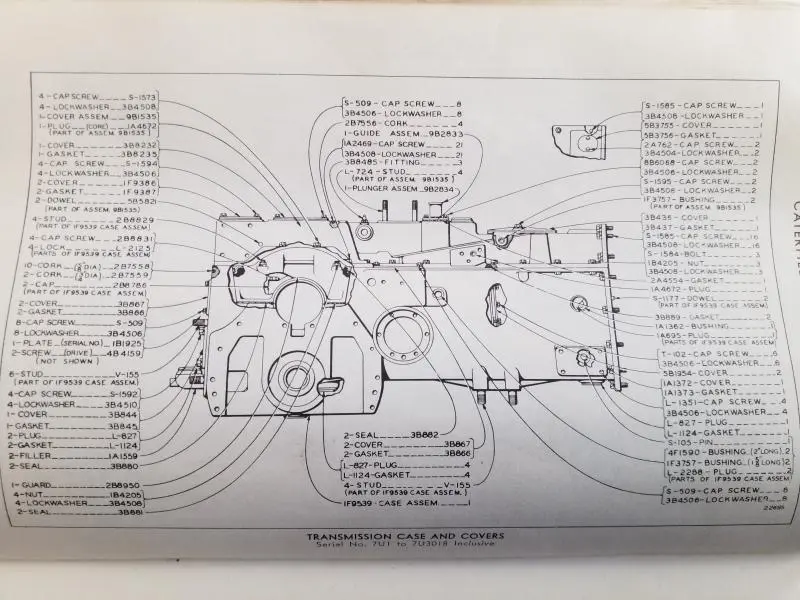 4-CAP SCREW___S-1573
4-LOCKWASHER__3B4508
1-COVER ASSEM.__9B1535
1-PLUG (CORE)__1A4672
(PART OF ASSEM. 9B1535)
1-COVER____3B8232
1-GASKET____3B8235
4-CAP SCREW____S-1594
4-LOCKWASHER___3B4506
2-COVER____1F9386
2-GASKET____1F9387
2-DOWEL____5B5821
(PART OF ASSEM. 9B1535)
4-STUD____2B8829
(PART OF 1F9539 CASE ASSEM)
4-CAP SCREW____2B8831
4-LOCK____L-2125
(PARTS OF 1F9539 CASE ASSEM)
10-CORK DIA.)__2B7558
2-CORK DIA.)__2B7559
2-CAP____2B8786
(PART OF 1F9539 CASE ASSEM)
2-COVER____3B867
2-GASKET____3B866
8-CAP SCREW____S-509
8-LOCKWASHER____3B4506
1-PLATE (SERIAL NO.)__1B1925
2-SCREW (DRIVE)__4B4159
(NOT SHOWN)
6-STUD____V-155
(PART OF 1F9539 CASE ASSEM)
4-CAP SCREW____S-1592
4-LOCKWASHER____3B4510
1-COVER____3B844
1-GASKET____3B845
2-PLUG____L-827
2-GASKET____L-1124
2-FILLER____1A1559
2-SEAL____3B880
1-GUARD____2B8950
4-NUT____1B4205
4-LOCKWASHER____3B4508
2-SEAL____3B881
S-509-CAP SCREW__8
3B4506-LOCKWASHER__8
2B7556-CORK____4
1-GUIDE ASSEM.__9B2833
1A2469-CAP SCREW__21
3B4508-LOCKWASHER__21
3B8485-FITTING____3
L-724-STUD____4
(PART OF ASSEM. 9B1535)
1-PLUNGER ASSEM.__9B2834
2-SEAL____3B882
2-COVER____3B867
2-GASKET____3B866
L-827-PLUG____4
L-1124-GASKET____4
4-STUD____V-155
(PART OF 1F9539 CASE ASSEM.)
1F9539-CASE ASSEM.____1
S-1585-CAP SCREW___1
3B4508-LOCKWASHER__1
5B3755-COVER____1
5B3756-GASKET____1
2A762-CAP SCREW___2
3B4504-LOCKWASHER__2
8B6068-CAP SCREW__2
3B4506-LOCKWASHER__2
S-1595-CAP SCREW__2
3B4508-LOCKWASHER__2
1F3757-BUSHING____2
(PART OF ASSEM. 9B1535)
3B436-COVER____1
3B437-GASKET____1
S-1585-CAP SCREW___16
3B4508-LOCKWASHER__16
S-1584-BOLT____3
1B4205-NUT____3
3B4508-LOCKWASHER___3
2A4554-GASKET____1
1A4672-PLUG____1
S-1177-DOWEL____2
(PART OF 1F9539 CASE ASSEM)
3B889-GASKET____2
1A1362-BUSHING____1
1A695-PLUG____1
(PARTS OF 1F9539 CASE ASSEM)
T-102-CAP SCREW___6
3B4506-LOCKWASHER__6
5B1954-COVER____2
1A1372-COVER____1
1A1373-GASKET____1
L-1351-CAP SCREW___4
3B4506-LOCKWASHER__4
L-827-PLUG____1
L-1124-GASKET____1
S-105-PIN____1
4F1590-BUSHING (2"LONG)_2
1F3757-BUSHING LONG)2
L-2288-PLUG____2
(PARTS OF 1F9539 CASE ASSEM)
S-509-CAP SCREW____8
3B4506-LOCKWASHER__8
22695
TRANSMISSION CASE AND COVERS
Serial No. 7U1 to 7U3018 Inclusive